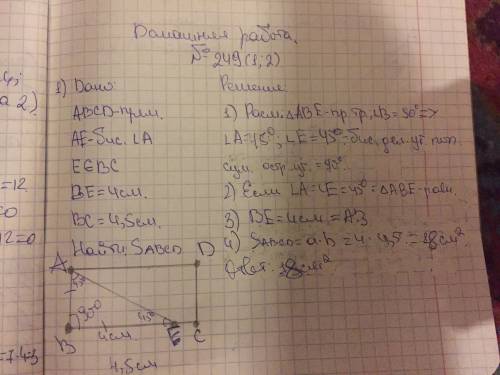 Домашняя работа.
№249(1;2)
1) Дано:
ABCD-прям.
AE-бис. LA
E∈BC
BE=4см.
BC=4,5см.
Найти: SABCD
Решение:
1) Расм. ΔABE-пр.тр, LB=90°=>
LA=45°, LE=45°=бис. дел. уг. поп.
сум. остр. уг. =90°.
2) Если LA=LE=45°=ΔABE-равн.
3) BE=4см.=AB
4) SABCD=a·b=4·4,5=18см²
Ответ: 18см²
A
D
45°
90°
45°
4см
B
E
C
4,5см
а 2)
=12
12=0
=7-4=3